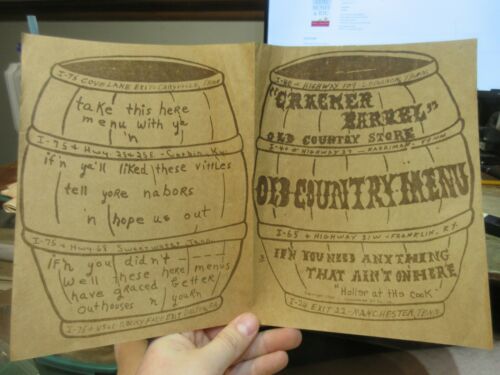 I-75 COVE LANE EXIT CARYVILLE, TENN
take this here
menu with ya
'n
I-75 & Hwy. 25 & 25E - Corbin, Ky.
if'n ya'll liked these vittles
tell yore nabors
'n hope us out
I-75 & Hwy. 68 Sweetwater Tenn.
if'n you didn't - - - -
well these here menus
have graced better
outhouses 'n yourn
I-75 &
EXIT
I-40 & HIGHWAY 109 LEBANON, TENN.
"CRACKER
BARREL"
OLD COUNTRY STORE
I-40 & HIGHWAY 27 - HARRIMAN, TENN
OLD COUNTRY MENU
I-65 & HIGHWAY 31W - FRANKLIN, KY.
IF'N YOU NEED ANYTHING
THAT AIN'T ON HERE
"Holler at tHe cooK"
I-24 EXIT 22 - MANCHESTER, TENN.